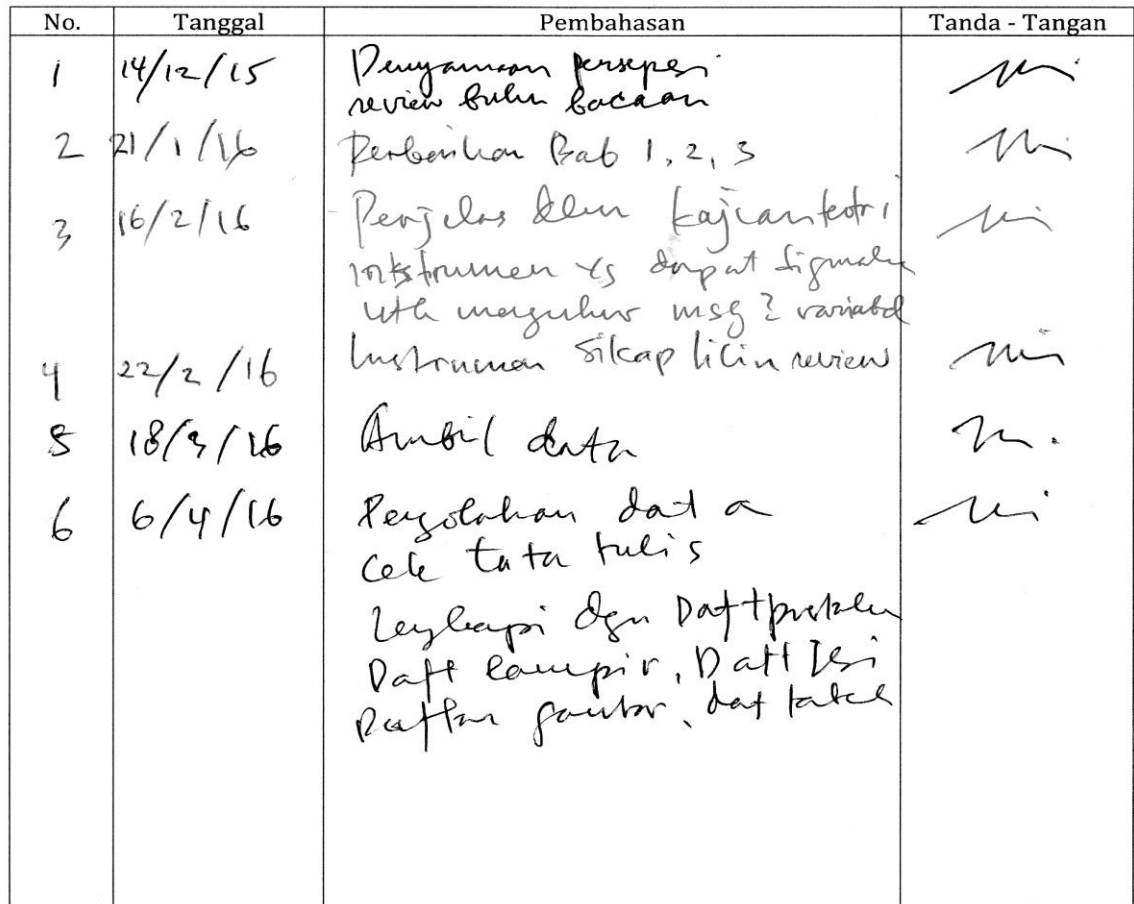 No. Tanggal Pembahasan Tanda - Tangan
1 14/12/15 Penyamaan persepsi
review buku bacaan
2 21/1/16 Perbaikan Bab 1, 2, 3
3 16/2/16 Perjelas dlm kajian teori
instrumen yg dapat digunakan
utk mengukur msg2 variabel
4 22/2/16 Instrumen sikap licin review
5 18/3/16 Ambil data
6 6/4/16 Pengolahan data
Cek tata tulis
Lengkapi dgn Daft pustaka
Daft lampir, Daft Isi
Daftar gambar, daf tabel